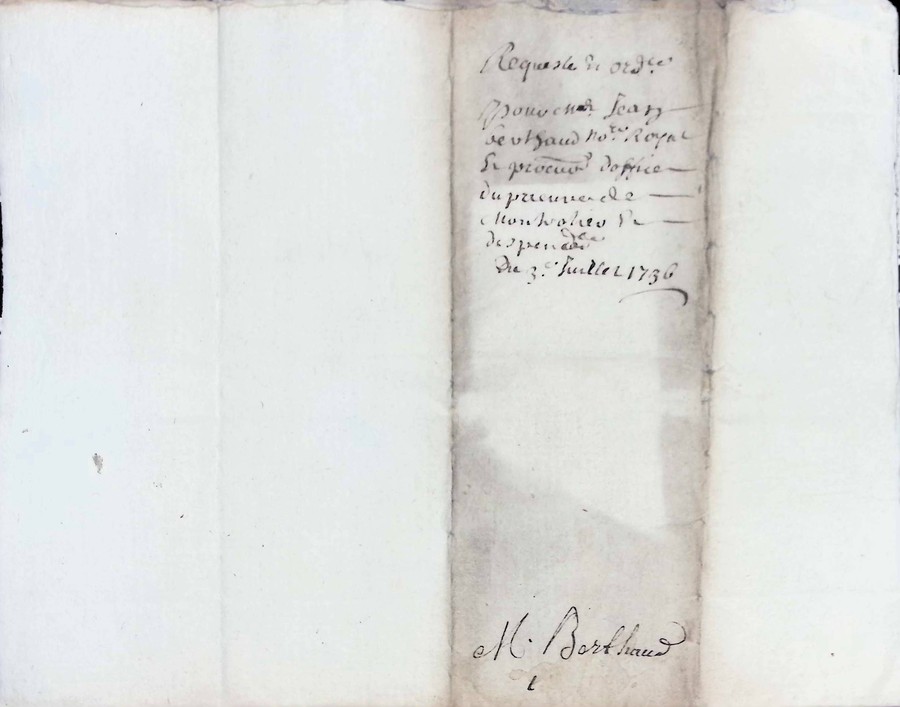 Requeste et ord.ce
Pour me Jean
berthaud no.re Royal
Et procureur doffice
du prieuré de
Et
despend.ces
Du 3.e Juillet 1736
M. Berthaud
1